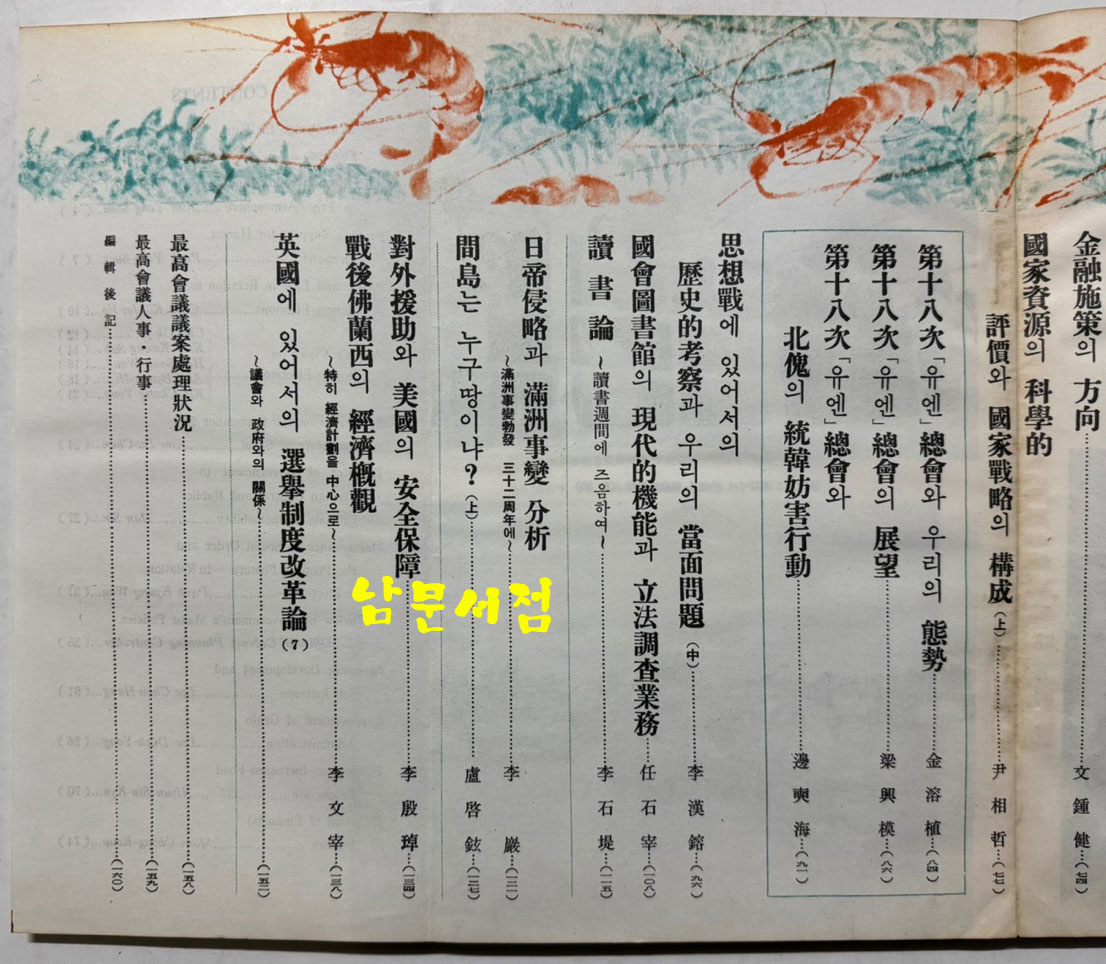 金融施策의 方向 文鍾健 (七四)
國家資源의 科學的
評價와 國家戰略의 構成 (上) 尹相哲 (七七)
第十八次「유엔」總會와 우리의 態勢 金溶植 (八四)
第十八次「유엔」總會의 展望 梁興模 (八六)
第十八次「유엔」總會와
北傀의 統韓妨害行動 邊奭海 (九一)
思想戰에 있어서의
歷史的考察과 우리의 當面問題 (中) 李漢鎔 (九六)
國會圖書館의 現代的機能과 立法調査業務 任石宰 (一〇八)
讀書論 ~讀書週間에 즈음하여~ 李石堤 (一一五)
日帝侵略과 滿洲事變 分析
~滿洲事變勃發 三十二周年에~ 李巖 (一二一)
間島는 누구땅이냐? (上) 盧啓鉉 (一二七)
對外援助와 美國의 安全保障 李殷琸 (一三四)
戰後佛蘭西의 經濟槪觀
~特히 經濟計劃을 中心으로~ 李文宰 (一三八)
英國에 있어서의 選擧制度改革論 (7)
~議會와 政府와의 關係~ (一五二)
最高會議議案處理狀況 (一五八)
最高會議人事·行事 (一五九)
編輯後記 (一六〇)
남문서점
CONTENTS